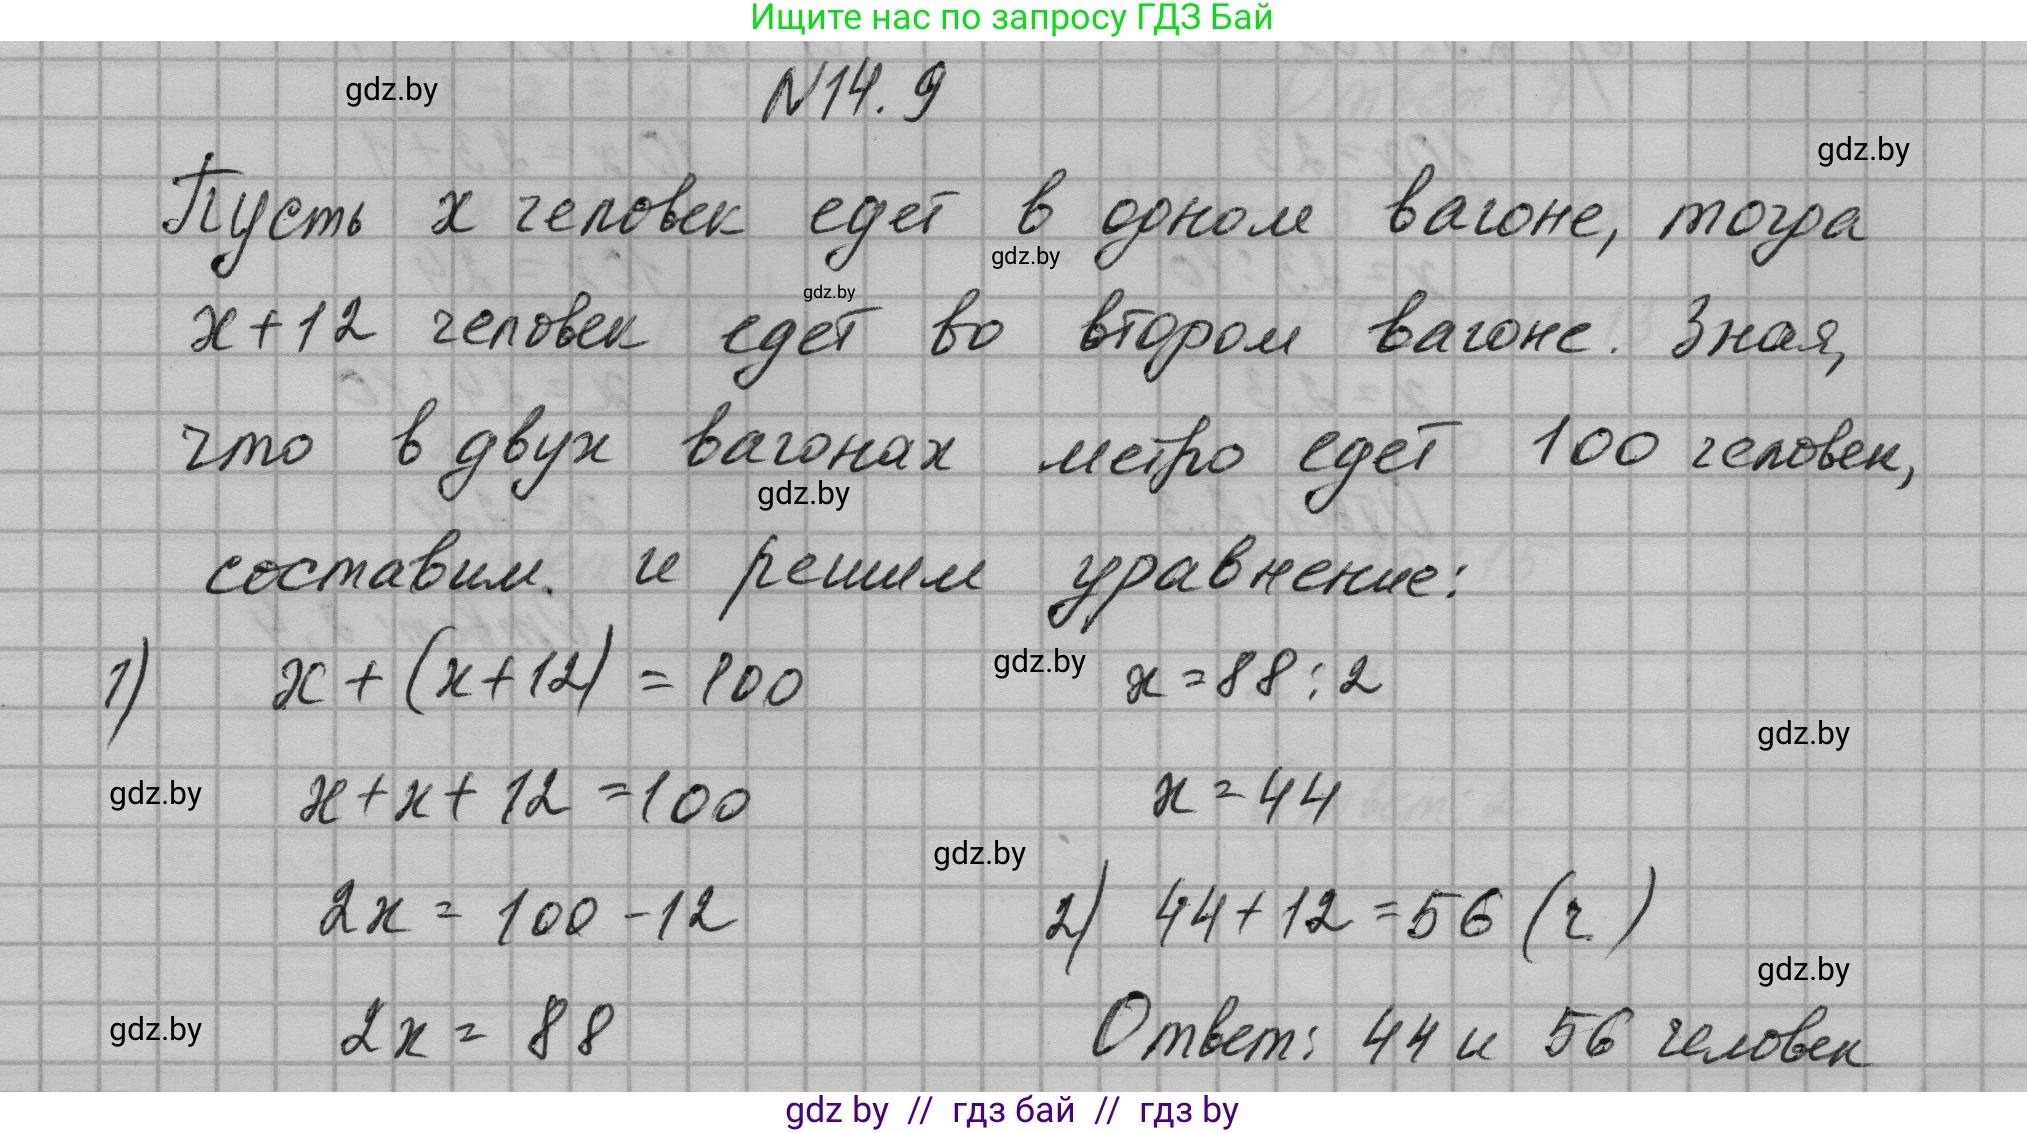 Ищите нас по запросу ГДЗ Бай
gdz.by
N14.9
gdz.by
Пусть x человек едет в одном вагоне, тогда
gdz.by
gdz.by
x+12 человек едет во втором вагоне. Зная,
что в двух вагонах метро едет 100 человек,
gdz.by
составим. и решим уравнение:
1) x+(x+12)=100
gdz.by
x=88:2
gdz.by
gdz.by
x+x+12=100
x=44
gdz.by
2x=100-12
2) 44+12=56 (ч)
gdz.by
gdz.by
2x=88
Ответ: 44 и 56 человек
gdz by // гдз бай // гдз by